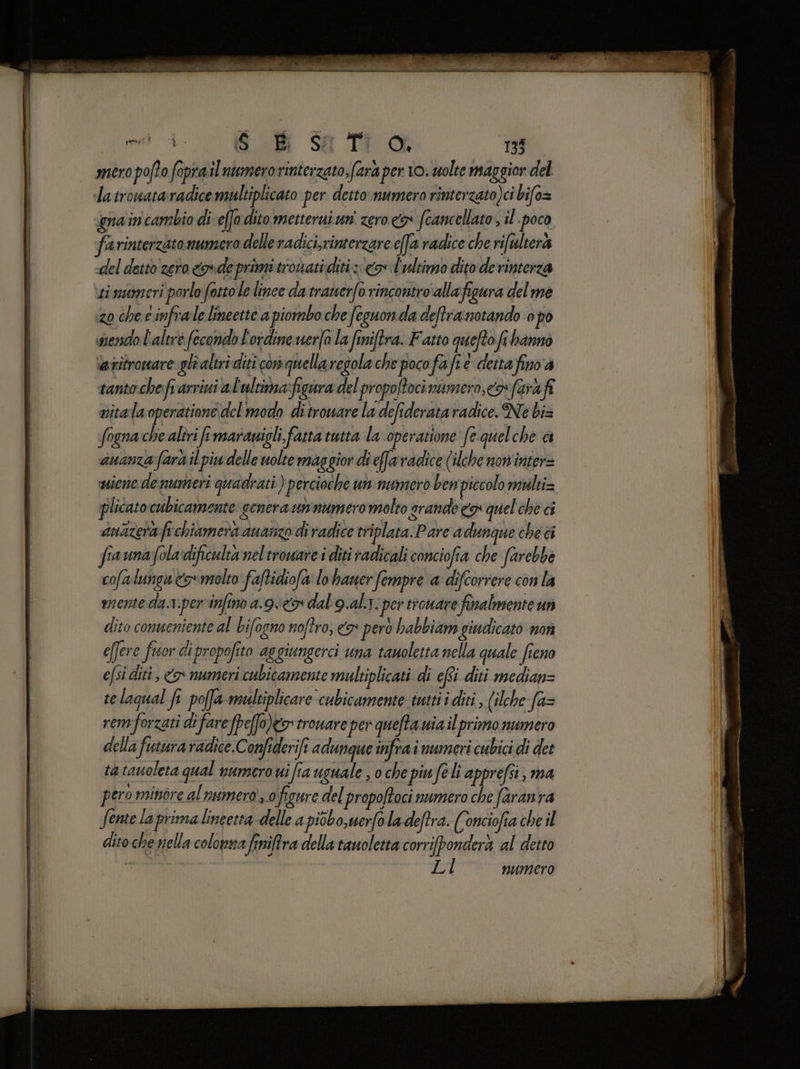 S E S T O. 135
mero posto soprail numero rinterzato, sara per 10. uolte maggior del
la trouata radice multiplicato per detto numero rinterzato) ci biso=
gna in cambio di esso dito metterui un zero & scancellato, il poco
fa rinterzato numero delle radici, rinterzare essa radice che risulterà
del detto zero & de primi trouati diti: & l'ultimo dito de rinterza
ti numeri porlo sotto le linee da trauerso rincontro alla figura del me
zo che è infra le lineette a piombo che seguon da destra notando o po
nendo l'altre secondo l'ordine uerso la sinistra. Fatto questo si hanno
a ritrouare gli altri diti con quella regola che poco fa si è detta fino a
tanto che si arriui a l'ultima figura del propostoci numero, & sarà fi
nita la operatione del modo di trouare la desiderata radice. Ne bi=
sogna che altri si marauigli, fatta tutta la operatione se quel che ci
auanza sarà il piu delle uolte maggior di essa radice (ilche non inter=
uiene de numeri quadrati) percioche un numero ben piccolo multi=
plicato cubicamente genera un numero molto grande & quel che ci
auãzerà si chiamerà auanzo di radice triplata. Pare adunque che ci
sia una sola dificultà nel trouare i diti radicali conciosia che sarebbe
cosa lunga & molto fastidiosa lo hauer sempre a discorrere con la
mente da.1. per infino a.9. & dal 9. al.1. per trouare finalmente un
dito conueniente al bisogno nostro, & però habbiam giudicato non
essere fuor di proposito aggiungerci una tauoletta nella quale sieno
essi diti, & numeri cubicamente multiplicati di essi diti median=
te laqual si possa multiplicare cubicamente tutti i diti, (ilche sa=
rem forzati di fare spesso) & trouare per questa uia il primo numero
della futura radice. Considerisi adunque infra i numeri cubici di det
ta tauoleta qual numero ui sia uguale, o che piu se li appressi, ma
però minore al numero, o figure del propostoci numero che saran ra
sente la prima lineetta delle a piõbo, uerso la destra. Conciosia che il
dito che nella colonna sinistra della tauoletta corrisponderà al detto
Ll numero